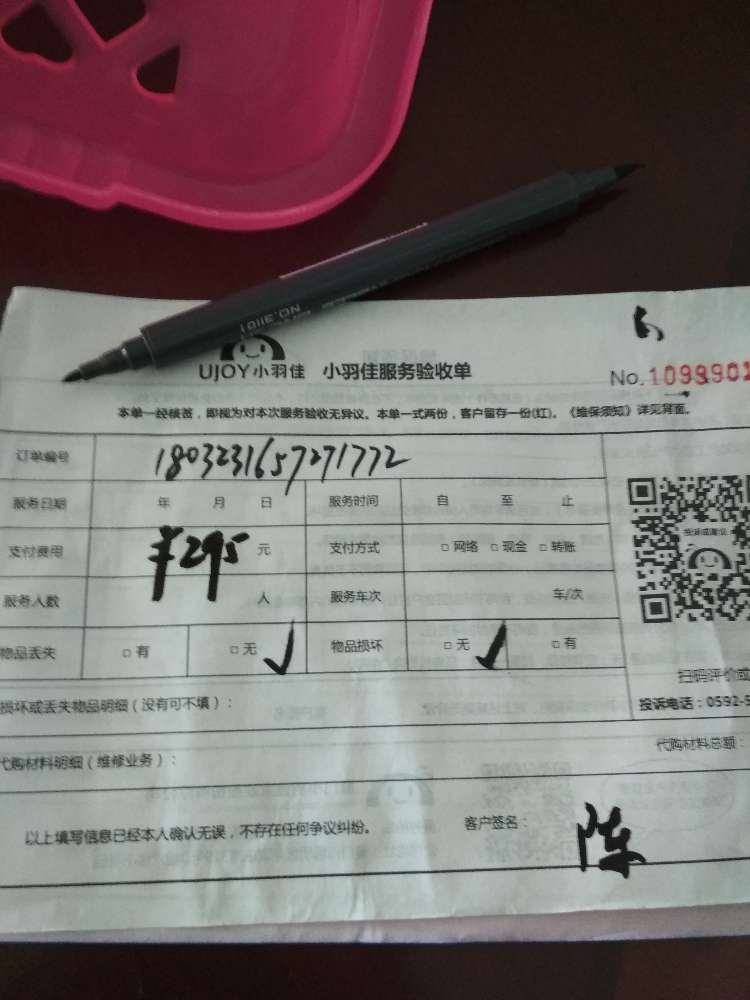 NO.311611
UJOY小羽佳 小羽佳服务验收单
No.1099901
本单一经核签，即视为对本次服务验收无异议。本单一式两份，客户留存一份(红)。《维保须知》详见背面。
订单编号 1803231657271772
服务日期 年 月 日 服务时间 自 至 止
支付费用 ¥295 元 支付方式 □ 网络 □ 现金 □ 转账
服务人数 人 服务车次 车/次
物品丢失 □ 有 □ 无 ✓ 物品损坏 □ 无 ✓ □ 有
扫码评价或
损坏或丢失物品明细（没有可不填）：
投诉电话：0592-5
代购材料明细（维修业务）：
代购材料总额：
以上填写信息已经本人确认无误，不存在任何争议纠纷。 客户签名： 陈